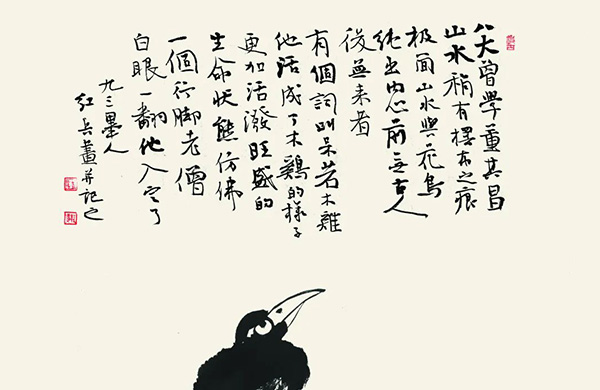 八大曾學董其昌
山水稍有之痕
面山水與花鳥
純出内心前無古人
後無来者
有個詞叫呆若木雞
他活成了木鷄的樣子
更加活潑旺盛的
生命狀態仿佛
一個行脚老僧
白眼一翻他入定了
九三墨人
红兵畫并記之